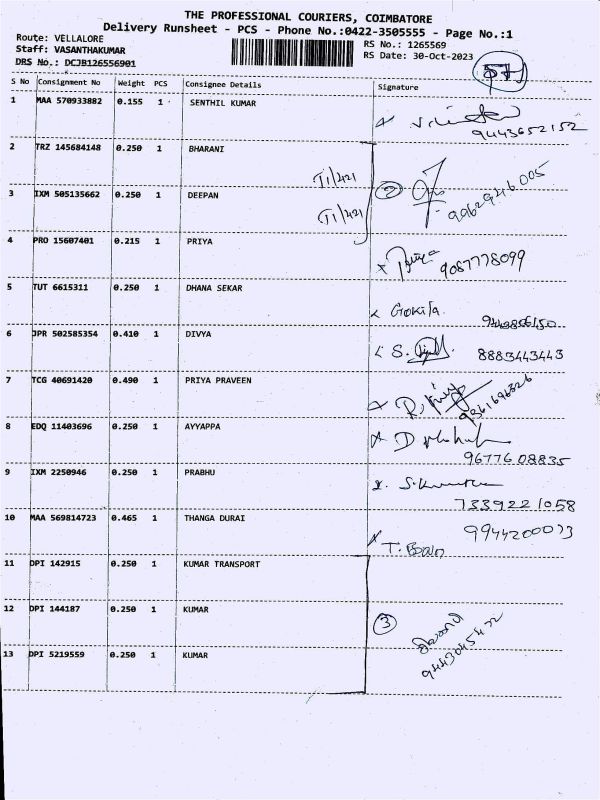 THE PROFESSIONAL COURIERS, COIMBATORE
Delivery Runsheet - PCS - Phone No.:0422-3505555 - Page No.:1
Route: VELLALORE
RS No.: 1265569
Staff: VASANTHAKUMAR
RS Date: 30-Oct-2023
DRS No.: DCJB126556901
S No Consignment No Weight PCS Consignee Details Signature
1 MAA 570933882 0.155 1 SENTHIL KUMAR
9443652152
2 TRZ 145684148 0.250 1 BHARANI
T1/421
2 9962946005
3 IXM 505135662 0.250 1 DEEPAN
T1/421
4 PRO 15607401 0.215 1 PRIYA
Priya 9087778099
5 TUT 6615311 0.250 1 DHANA SEKAR
Gokila
6 JPR 502585354 0.410 1 DIVYA
S. 8883443443
7 TCG 40691420 0.490 1 PRIYA PRAVEEN
8 EDQ 11403696 0.250 1 AYYAPPA
9677608835
9 IXM 2250946 0.250 1 PRABHU
7339221058
10 MAA 569814723 0.465 1 THANGA DURAI
9944200073
T.
11 DPI 142915 0.250 1 KUMAR TRANSPORT
12 DPI 144187 0.250 1 KUMAR
3
13 DPI 5219559 0.250 1 KUMAR